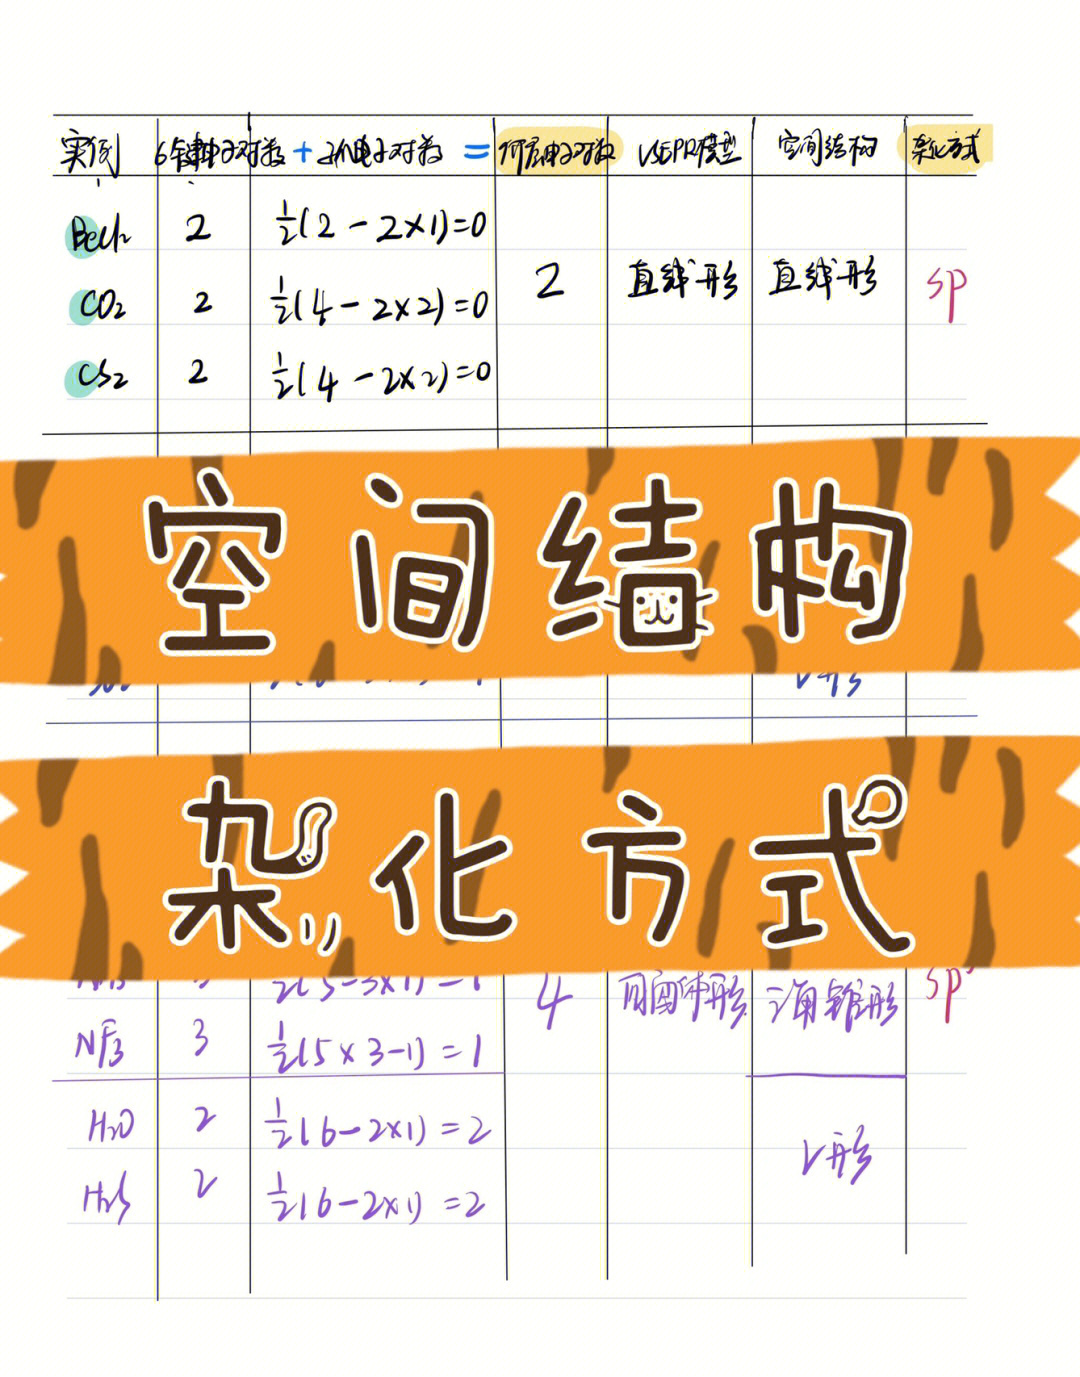 实例 σ键电子对数 + 孤电子对数 = 价层电子对数 VSEPR模型 空间结构 杂化方式
BeCl₂ 2 ½(2-2×1)=0
2 直线形 直线形 sp
CO₂ 2 ½(4-2×2)=0
CS₂ 2 ½(4-2×2)=0
空间结构
V形
杂化方式
4 四面体形 三角锥形 sp³
NF₃ 3 ½(5×3-1)=1
H₂O 2 ½(6-2×1)=2
V形
H₂S 2 ½(6-2×1)=2